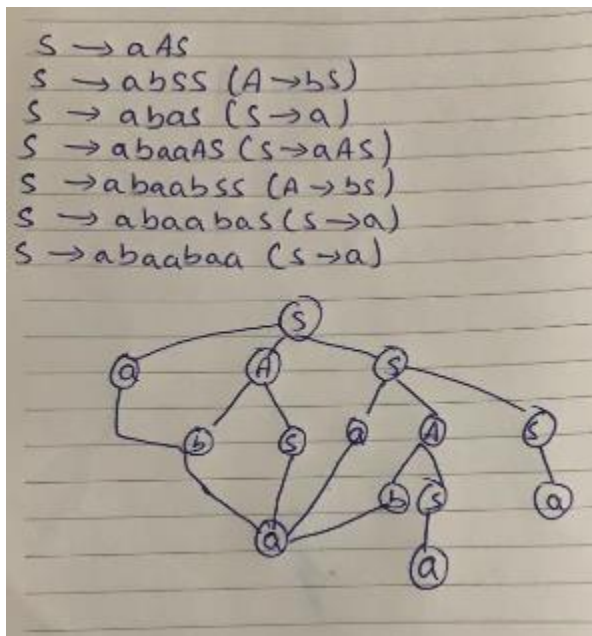 S → aAS
S → abSS (A→bS)
S → abaS (S→a)
S → abaaAS (S→aAS)
S → abaabSS (A→bS)
S → abaabaS (S→a)
S → abaabaa (S→a)
S
a A S
b S a A S
b S a
a a